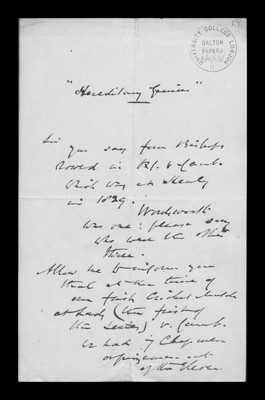 UNIVERSITY COLLEGE LONDON
GALTON
PAPERS
"Hereditary Genius"
Sir you say four Bishops
rowed in Oxf. & Camb.
which was at Henly
in 1829.
Wordsworth
was one: please say
who were the other
three.
Allow me to inform you
that at the time of
our first Cricket match
at Lords (the first of
the series) v. Camb.
we had 7 Clergymen
out
of the Eleven